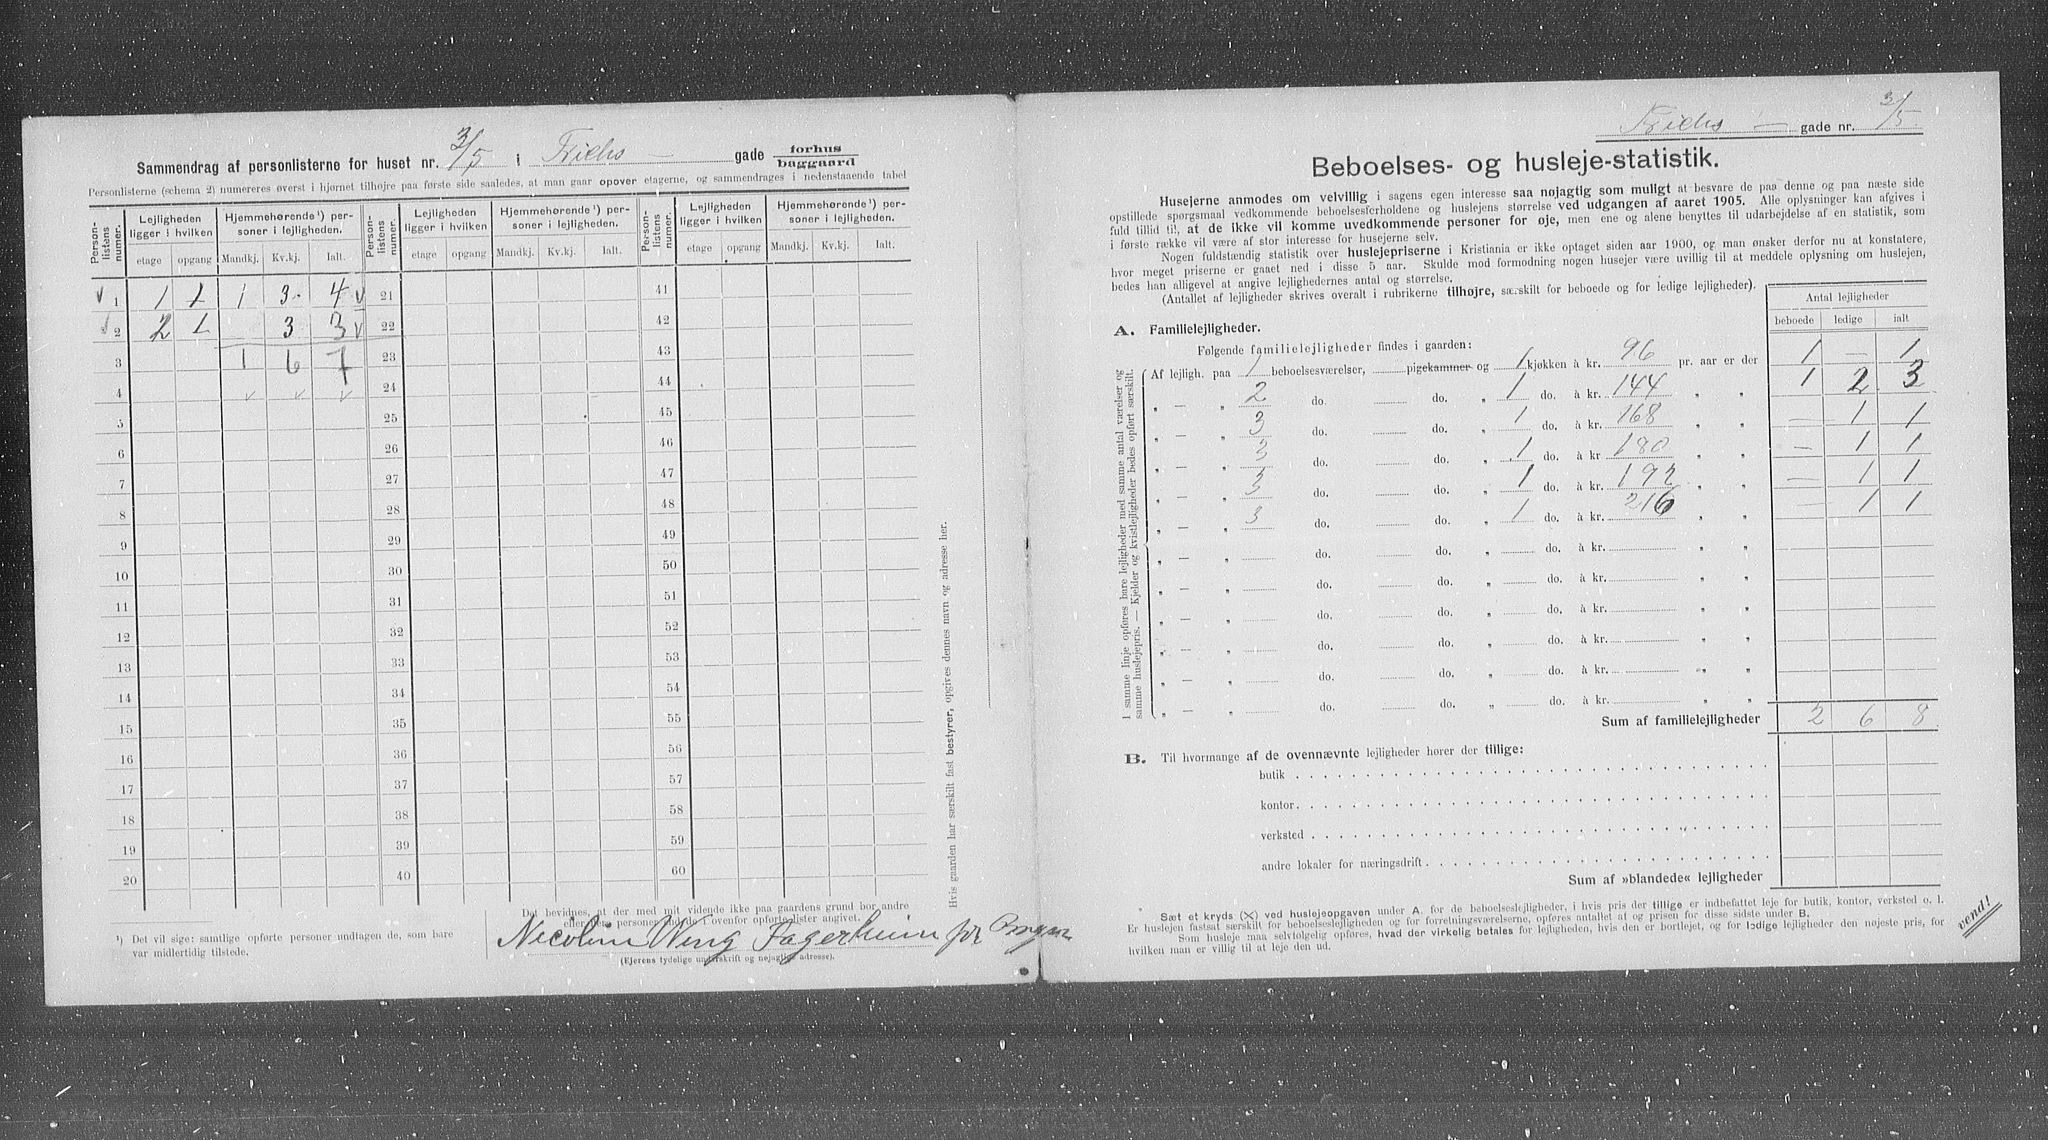 Sammendrag af personlisterne for huset nr. 3/5 i Frichs — gade forhus baggaard
Personlisterne (schema 2) numereres øverst i hjørnet tilhøjre paa første side saaledes, at man gaar opover etagerne, og sammendrages i nedenstaaende tabel
Person-listens numer. Lejligheden ligger i hvilken Hjemmehørende¹) personer i lejligheden. Person-listens numer. Lejligheden ligger i hvilken Hjemmehørende¹) personer i lejligheden. Person-listens numer. Lejligheden ligger i hvilken Hjemmehørende¹) personer i lejligheden.
etage opgang Mandkj. Kv.kj. Ialt. etage opgang Mandkj. Kv.kj. Ialt. etage opgang Mandkj. Kv.kj. Ialt.
√ 1 1 1 1 3 4 √ 21 41
√ 2 2 1 3 3 √ 22 42
3 1 6 7 23 43
4 √ √ √ 24 44
5 25 45
6 26 46
7 27 47
8 28 48
9 29 49
10 30 50
11 31 51
12 32 52
13 33 53
14 34 54
15 35 55
16 36 56
17 37 57
18 38 58
19 39 59
20 40 60
¹) Det vil sige: samtlige opførte personer undtagen de, som bare
var midlertidig tilstede.
Det bevidnes, at der med mit vidende ikke paa gaardens grund bor andre
eller flere personer end de i ovenfor opførte lister angivet.
Nicolin Wing Fagerheim for
(Ejerens tydelige underskrift og nøjagtige adresse).
Hvis gaarden har særskilt fast bestyrer, opgives dennes navn og adresse her.
Frichs — gade nr. 3/5.
Beboelses- og husleje-statistik.
Husejerne anmodes om velvillig i sagens egen interesse saa nøjagtig som muligt at besvare de paa denne og paa næste side
opstillede spørgsmaal vedkommende beboelsesforholdene og huslejens størrelse ved udgangen af aaret 1905. Alle oplysninger kan afgives i
fuld tillid til, at de ikke vil komme uvedkommende personer for øje, men ene og alene benyttes til udarbejdelse af en statistik, som
i første række vil være af stor interesse for husejerne selv.
Nogen fuldstændig statistik over huslejepriserne i Kristiania er ikke optaget siden aar 1900, og man ønsker derfor nu at konstatere,
hvor meget priserne er gaaet ned i disse 5 aar. Skulde mod formodning nogen husejer være uvillig til at meddele oplysning om huslejen,
bedes han alligevel at angive lejlighedernes antal og størrelse.
(Antallet af lejligheder skrives overalt i rubrikerne tilhøjre, særskilt for beboede og for ledige lejligheder).
Antal lejligheder
beboede ledige ialt
A. Familielejligheder.
Følgende familielejligheder findes i gaarden:
Af lejligh. paa 1 beboelsesværelser, pigekammer og 1 kjøkken à kr. 96 pr. aar er der 1 — 1
„ — „ 2 do. do. „ 1 do. à kr. 144 „ „ 1 2 3
„ — „ 3 do. do. „ 1 do. à kr. 168 „ „ — 1 1
„ — „ 3 do. do. „ 1 do. à kr 180 „ „ — 1 1
„ — „ 3 do. do. „ 1 do. à kr. 192 „ „ — 1 1
„ — „ 3 do. do. „ 1 do. à kr. 216 „ „ — 1 1
„ — „ do. do. „ do. à kr. „ „
„ — „ do. do. „ do. à kr. „ „
„ — „ do. do. „ do. à kr. „ „
„ — „ do. do. „ do. à kr. „ „
„ — „ do. do. „ do. à kr. „ „
„ — „ do. do. „ do. à kr. „ „
I samme linje opføres bare lejligheder med samme antal værelser og
samme huslejepris. — Kjelder og kvistlejligheder bedes opført særskilt.
Sum af familielejligheder 2 6 8
B. Til hvormange af de ovennævnte lejligheder hører der tillige:
butik
kontor
verksted
andre lokaler for næringsdrift
Sum af »blandede« lejligheder
Sæt et kryds (X) ved huslejeopgaven under A. for de beboelseslejligheder, i hvis pris der tillige er indbefattet leje for butik, kontor, verksted o. l.
Er huslejen fastsat særskilt for beboelseslejligheden og for forretningsværelserne, opføres antallet at og prisen for disse sidste under B.
Som husleje maa selvtølgelig opføres, hvad der virkelig betales for lejligheden, hvis den er bortlejet, og for ledige lejligheder den nøjeste pris, for
hvilken man er villig til at leje den ud.
vend!